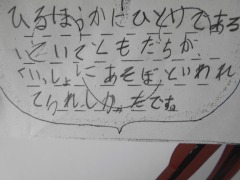 ひるほうかにひとりである
いていてともだちが、
いっしょにあそぼといわれ
てうれしかったです。